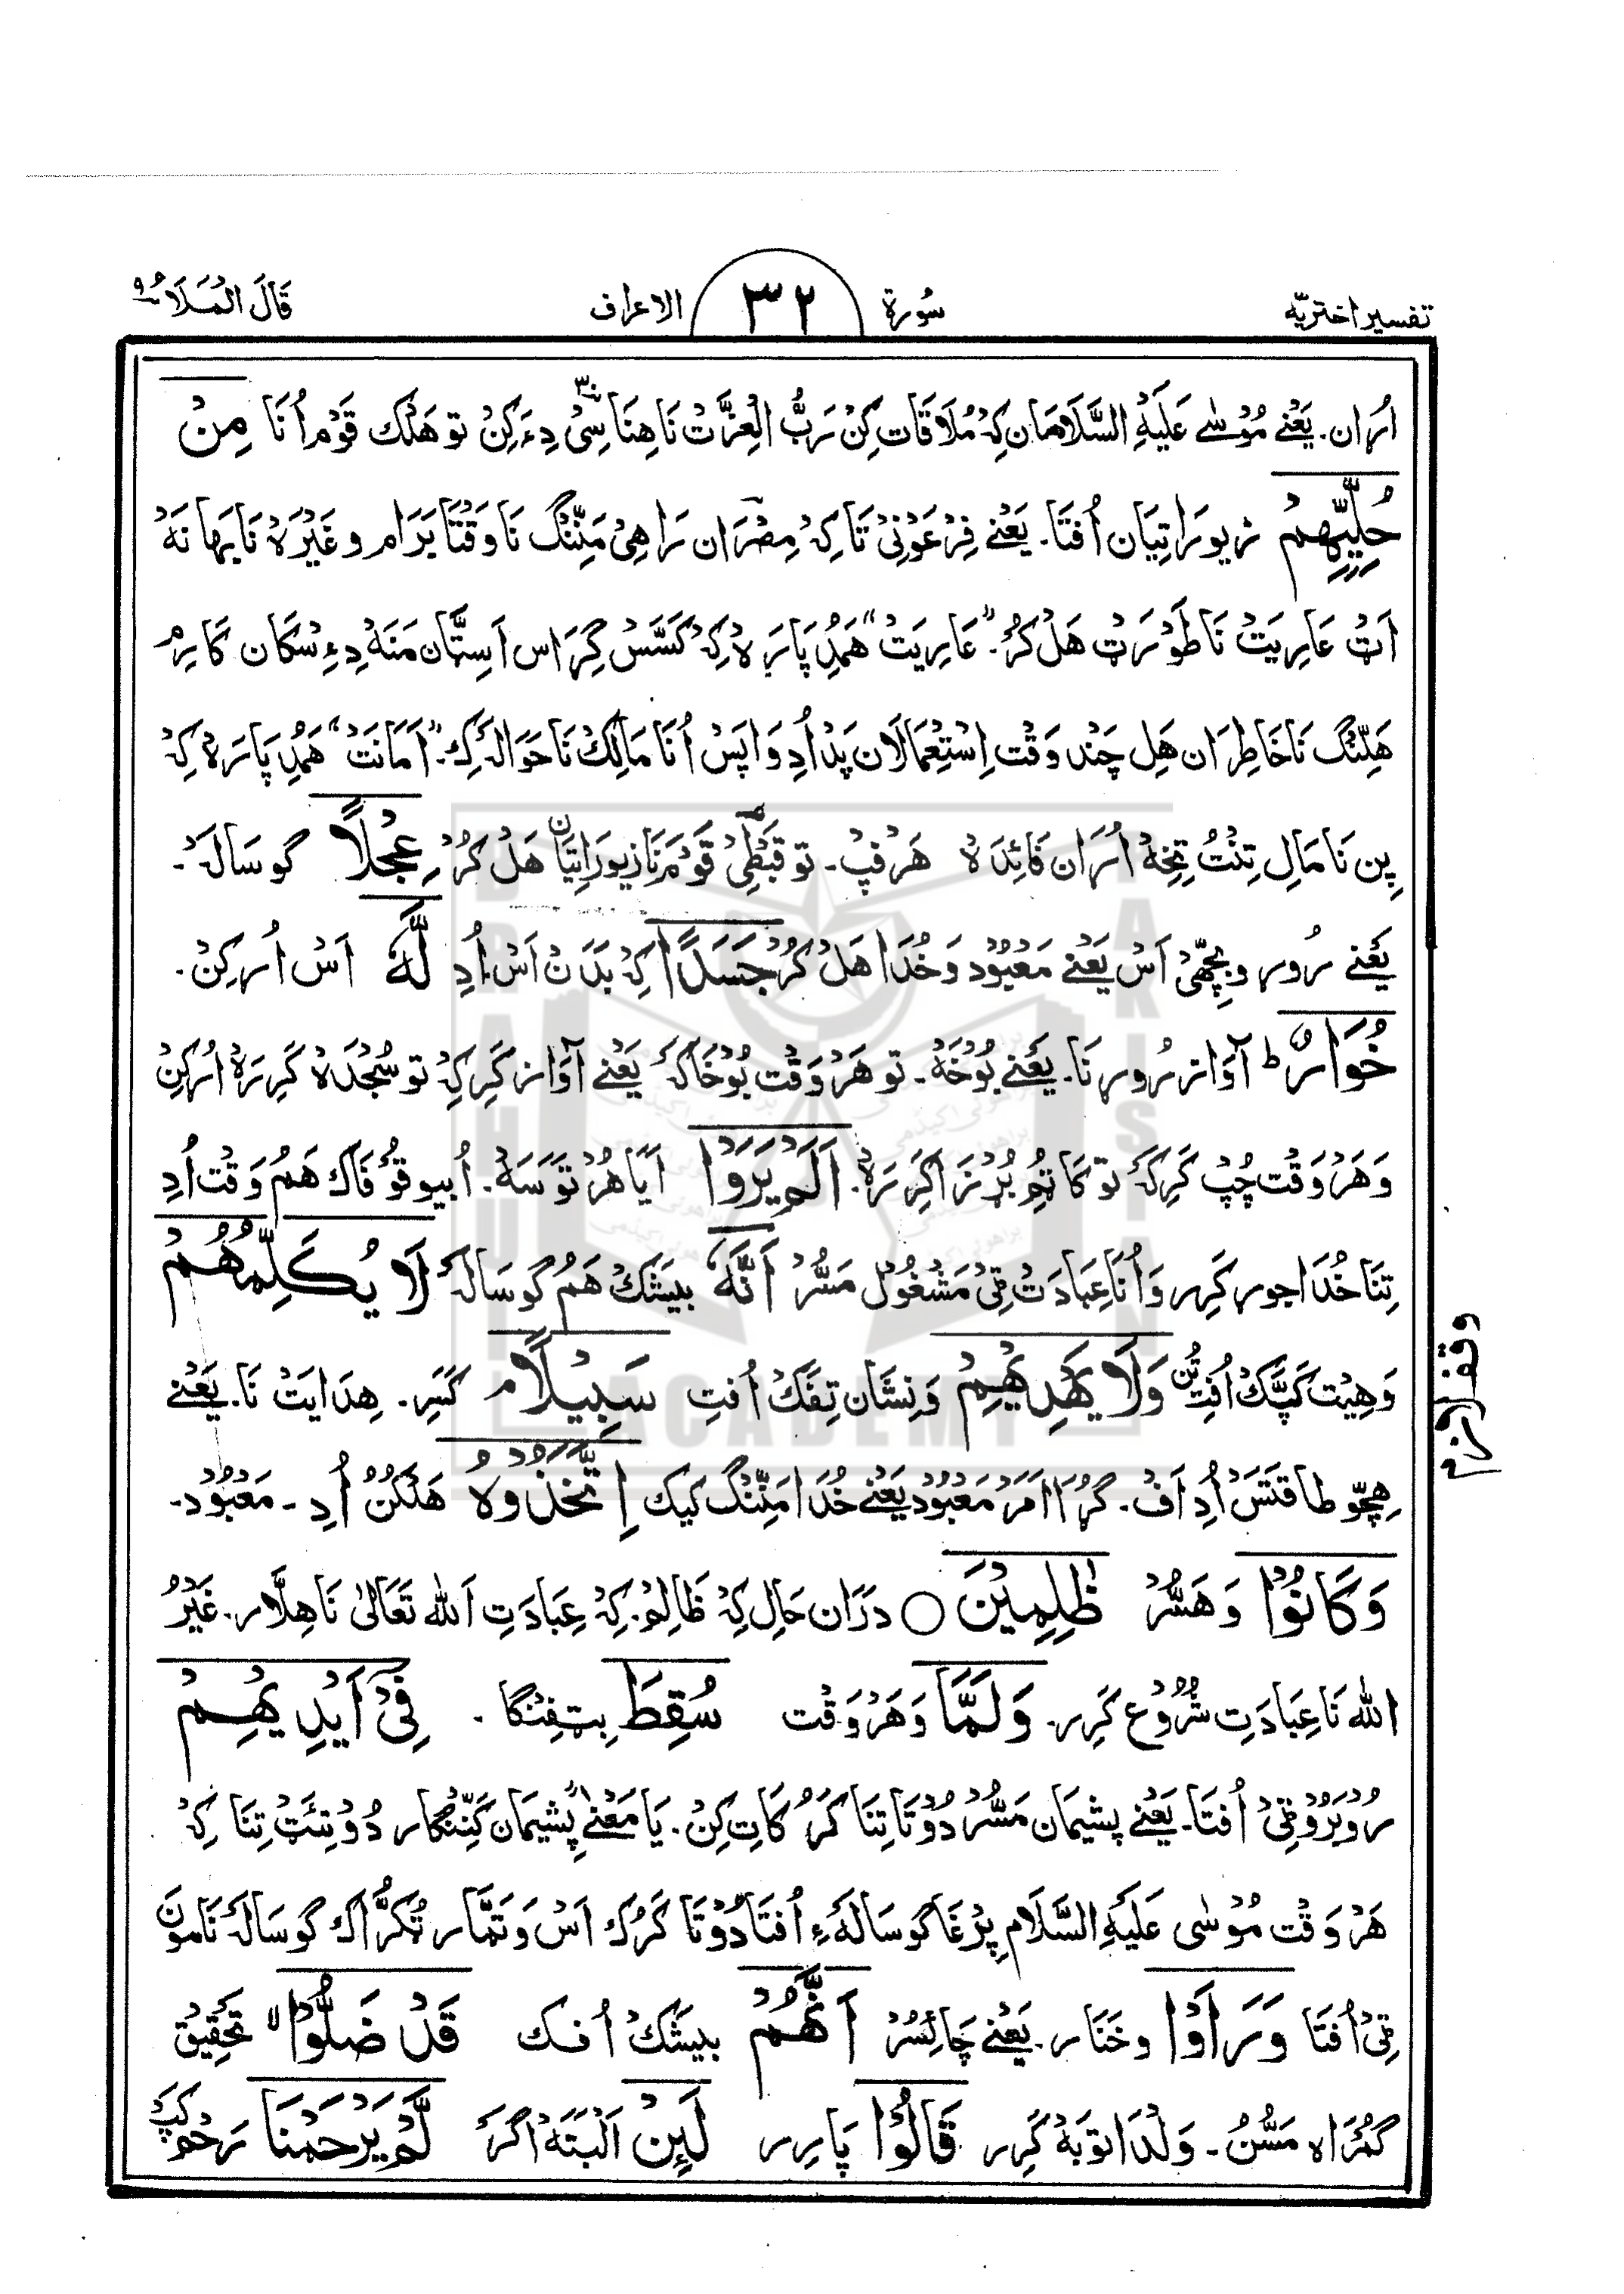 تفسیر اختریّه سُورة ٣٢ الاعراف قَالَ الْمَلَاُ ٩
اُرَان۔ یَعْنے مُوْسٰے عَلَیْهِ السَّلَامْان کِہْ مُلَاقَات کِنْ رَبُّ الْعِزَّتْ نَا ھِنَا سِیْ دِءَ کِنْ تو هَلْك قَوْم اُنَا مِنْ
حُلِیِّهِمْ زیورَاتِیَان اُفتَا۔ یَعْنے فِرْعَوْنِیْ تَا کِہْ مِصْرَان رَاهِیْ مَنِّنْگ نَا وَقْتَا بَرَام و غَیْرَہْ نَا بَهَانَهْ
اَتْ عَارِیَتْ نَا طَوْرَتْ هَلْ کَرُ۔ "عَارِیَتْ" هَمُدِ پَارَہ کِہْ کَسَّسْ گِرَاس اَسِ تَان مَنَهْ دِءِسْکَان کَارِم
هَلِّنْگ نَاخَاطِرَان هَلِ چَنْد وَقْت اِسْتِعْمَالَان پَدْ اُدِ وَاپَس اُنَا مَالِكْ نَا حَوَالہ کِ۔ "اَمَانَتْ" هَمُدِ پَارَہْ کِہْ
پِن نَا مَالِ تِنْتُ تِخِهْ اُرَان فَائِدَہ هَرْفپ۔ تو قَبْطِیْ قَوْم نَا زیورَاتِیَان هَلْ کَرُ عِجْلًا گوسَالَہْ۔
یَعْنے رُور و بِچّهیْ اَسْ یَعْنے مَعْبُوْد وَخُدَا هَلْ کَرُ جَسَدًا کِہْ بَدَنْ اَسْ اُدِ لَّهٗ اَسْ اُرکِنْ۔
خُوَارٌ ط آوَاز رُور نَا۔ یَعْنے بُوْخَهْ۔ تو هَرْوَقْت بُوْخَاکَہ یَعْنے آوَاز کَرِکِہْ تو سُجْدَہْ کَرِرَہْ اُرکِنْ
وَهَرْوَقْت چُپْ کَرِکَہْ تو کَاتُمِ بُرْزَا کَرِرَہْ۔ اَلَمْ یَرَوْا اَیَا هُرْتَوَسَهْ۔ اُبیوقُوْفَاك هَمُ وَقْت اُدِ
تِنَا خُدَا جور کَرِر وَ اُنَا عِبَادَتْ ٹِیْ مَشْغُوْل مَسُّرْ اَنَّهٗ بیشَكْ هَمُ گوسَالہ لَا یُکَلِّمُهُمْ
وَهِیْت کَپَّكْ اُفتِتُن وَلَا یَهْدِیْهِمْ وَنِشَان تِفَّكْ اُفتِ سَبِیْلًا م کَسَرِ۔ هِدَایَتْ نَا۔ یَعْنے
هِچّو طَاقتَسْ اُدِ اَفْ۔ گُڑَا اَمَر مَعْبُوْد یَعْنے خُدَا مَنِّنْگ کیك اِتَّخَذُوْهُ هَلْکُنُ اُدِ۔ مَعْبُوْد۔
وَکَانُوْا وَهَسُّرْ ظٰلِمِیْنَ ○ دَرَان حَالِ کِہْ ظَالِم۔ کِہْ عِبَادَتِ اَللہ تَعَالٰی نَا هِلَّار۔ غَیْرُ
اللہ نَا عِبَادَتِ شُرُوْع کَرِر۔ وَلَمَّا وَهَرْوَقْت سُقِطَ بِتِفِنْگَا۔ فِیْ اَیْدِیْهِمْ
رُوْبَرُوْٹِیْ اُفتَا۔ یَعْنے پشیمَان مَسُّرْ دُوْتَا تِنَا کَرُ کَاتِ کِنْ۔ یَا مَعْنے پشیمَان کَنِّنْگَار دُوْتِئَتْ تِنَا کِہْ
هَرْ وَقْت مُوْسٰی عَلَیْهِ السَّلَامِ پِرْغَا گوسَالَهْءِ اُفتَا دُوْتَا کَرُك اَسْ وَتَمَّار ٹُکَرَّاك گوسَالَہ نَا مون
ٹِیْ اُفتَا وَرَاَوْا وخَنَار۔ یَعْنے چَائِسُرْ اَنَّهُمْ بیشَكْ اُفك قَدْ ضَلُّوْا تَحْقِیْق
گُمْرَاہ مَسُّنُ۔ وَلْدَا تَوْبَهْ کَرِر قَالُوْا پَارِر لَئِنْ اَلْبَتَّهْ اگَرَ لَّمْ یَرْحَمْنَا رَحْم کپَ
وقف لازم